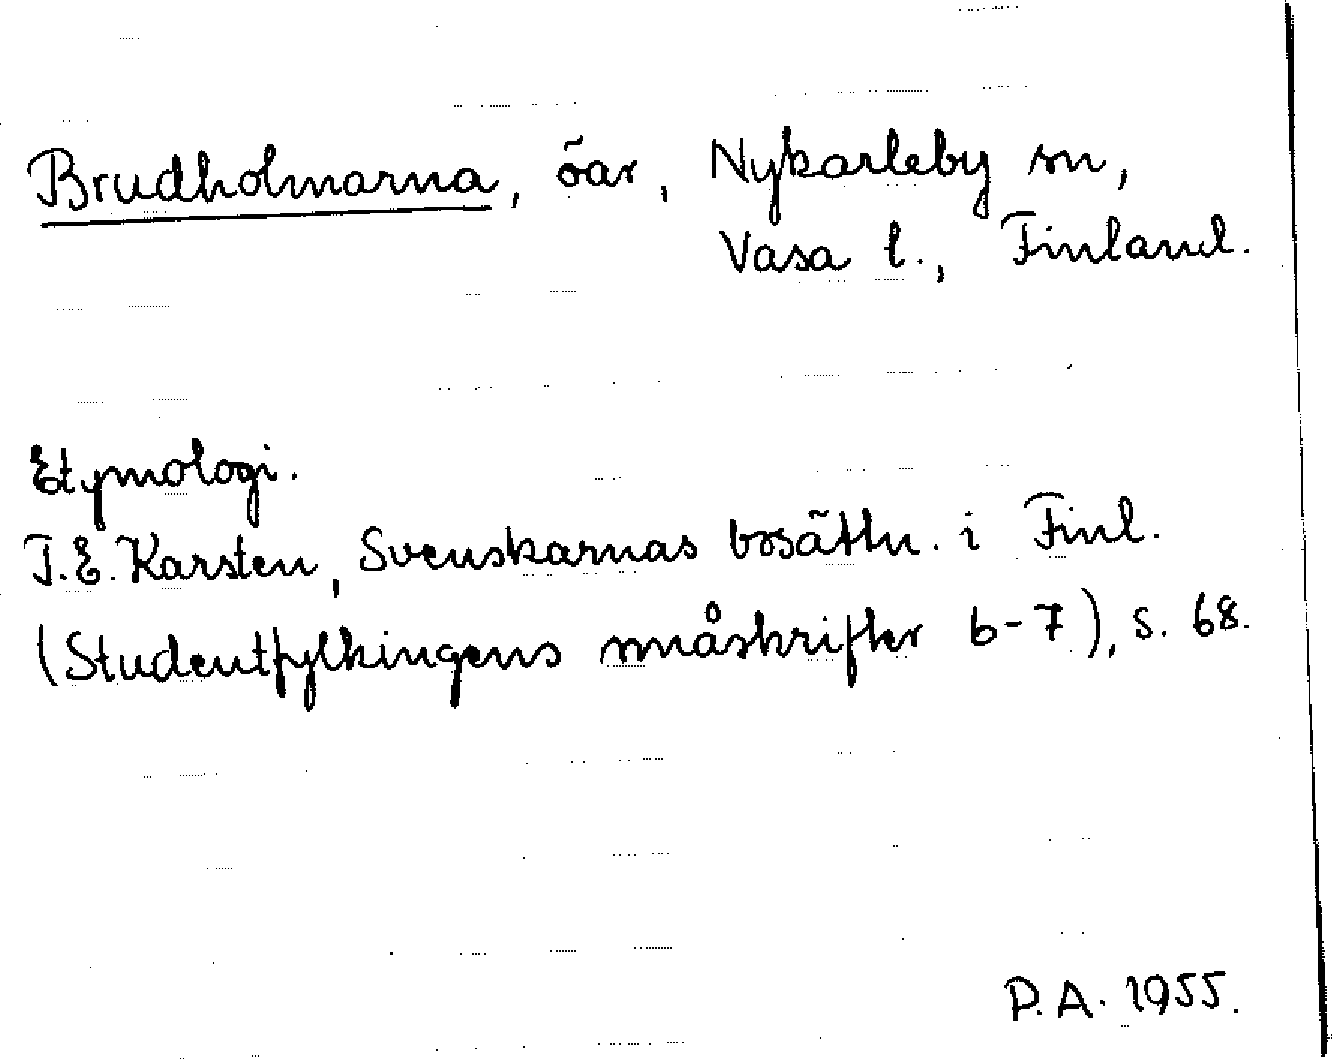 Brudholmarna, öar, Nykarleby sn,
Vasa l., Finland.
Etymologi.
T.E. Karsten, Svenskarnas bosättn. i Finl.
(Studentfylkingens småskrifter 6-7), s. 68.
P.A. 1955.